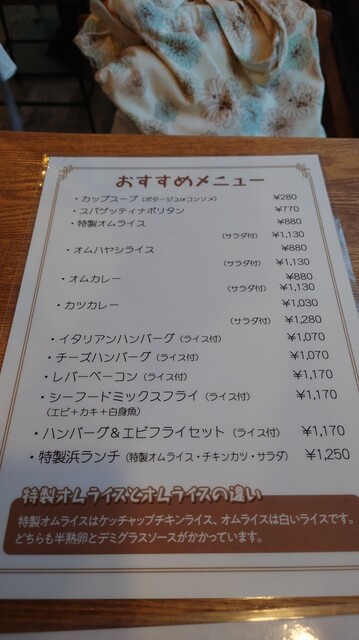 おすすめメニュー
・カップスープ（ポタージュorコンソメ） ¥280
・スパゲッティナポリタン ¥770
・特製オムライス ¥880
（サラダ付） ¥1,130
・オムハヤシライス ¥880
（サラダ付） ¥1,130
・オムカレー ¥880
（サラダ付） ¥1,130
・カツカレー ¥1,030
（サラダ付） ¥1,280
・イタリアンハンバーグ（ライス付） ¥1,070
・チーズハンバーグ（ライス付） ¥1,070
・レバーベーコン（ライス付） ¥1,170
・シーフードミックスフライ（ライス付） ¥1,170
（エビ＋カキ＋白身魚）
・ハンバーグ＆エビフライセット（ライス付） ¥1,170
・特製浜ランチ（特製オムライス・チキンカツ・サラダ） ¥1,250
特製オムライスとオムライスの違い
特製オムライスはケッチャップチキンライス、オムライスは白いライスです。
どちらも半熟卵とデミグラスソースがかかっています。